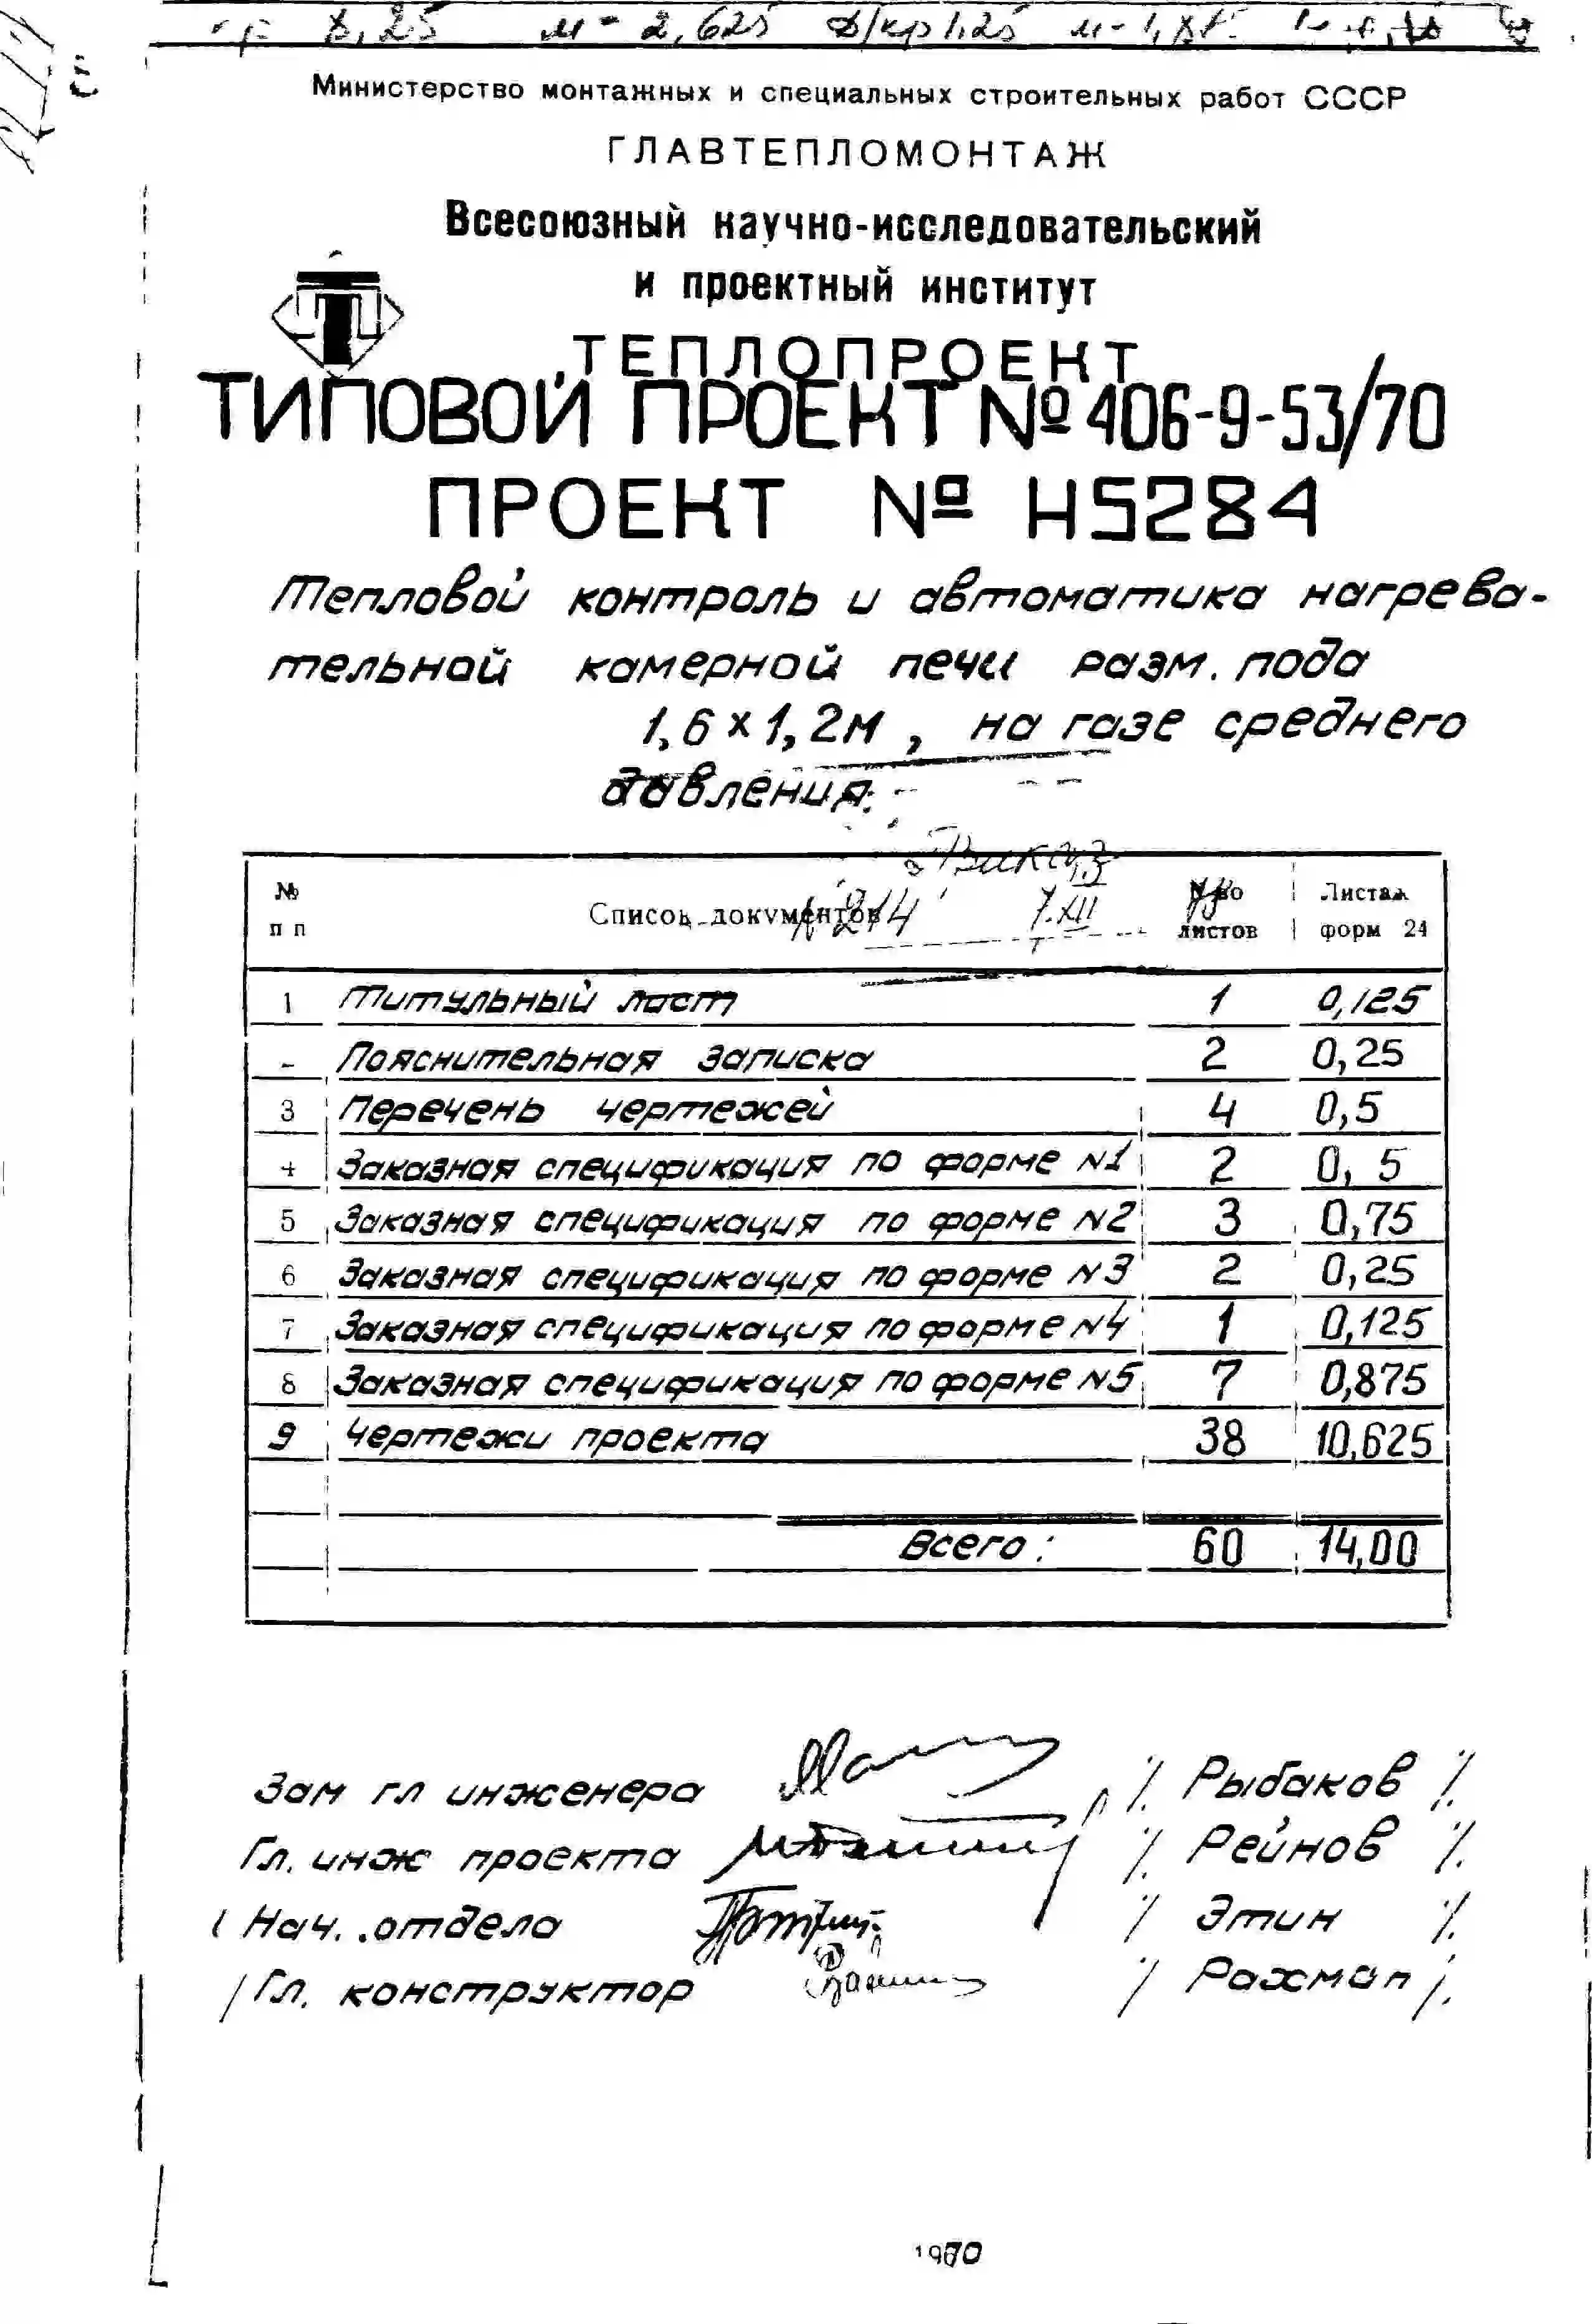 8,25 м- 2,625
Министерство монтажных и специальных строительных работ СССР
ГЛАВТЕПЛОМОНТАЖ
Всесоюзный научно-исследовательский
и проектный институт
ТЕПЛОПРОЕКТ
ТИПОВОЙ ПРОЕКТ № 406-9-53/70
ПРОЕКТ № Н5284
Тепловой контроль и автоматика нагрева-
тельной камерной печи разм. пода
1,6 х 1,2м, на газе среднего
давления.
№ п п Список документов листов Листаж форм 24
1 Титульный лист 1 0,125
- Пояснительная записка 2 0,25
3 Перечень чертежей 4 0,5
4 Заказная спецификация по форме №1 2 0,5
5 Заказная спецификация по форме №2 3 0,75
6 Заказная спецификация по форме №3 2 0,25
7 Заказная спецификация по форме №4 1 0,125
8 Заказная спецификация по форме №5 7 0,875
9 Чертежи проекта 38 10,625
Всего: 60 14,00
Зам гл инженера /. Рыбаков /.
Гл. инж проекта /. Рейнов /.
Нач. отдела / Этин /.
Гл. конструктор / Рахман /.
1970